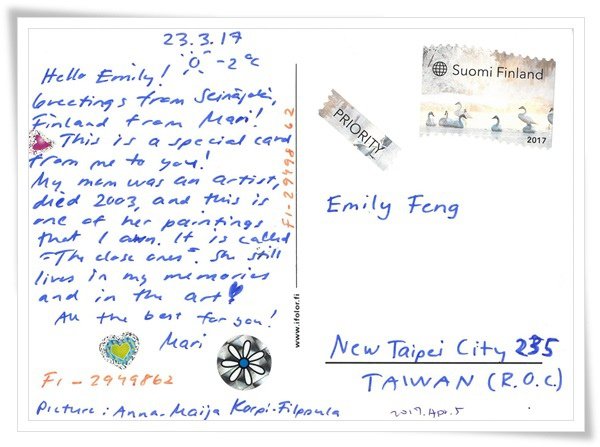 23.3.17
-2 °C
Hello Emily!
Greetings from Seinäjoki,
Finland from Mari!
This is a special card
from me to you!
My mom was an artist,
died 2003, and this is
one of her paintings
that I own. It is called
"The close ones". She still
lives in my memories
and in the art!
All the best for you!
Mari
FI-2949862
Picture: Anna-Maija Korpi-Filppula
FI-2949862
www.ifolor.fi
PRIORITY
Suomi Finland
2017
Emily Feng
New Taipei City 235
TAIWAN (R.O.C.)
2017.Apr.5